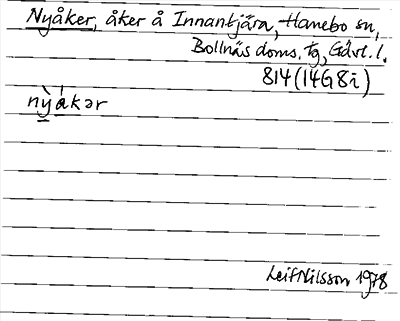 Nyåker, åker å Innantjära, Hanebo sn,
Bollnäs doms. tg, Gävl. l.
814 (14G8i)
nỳákər
Leif Nilsson 1978